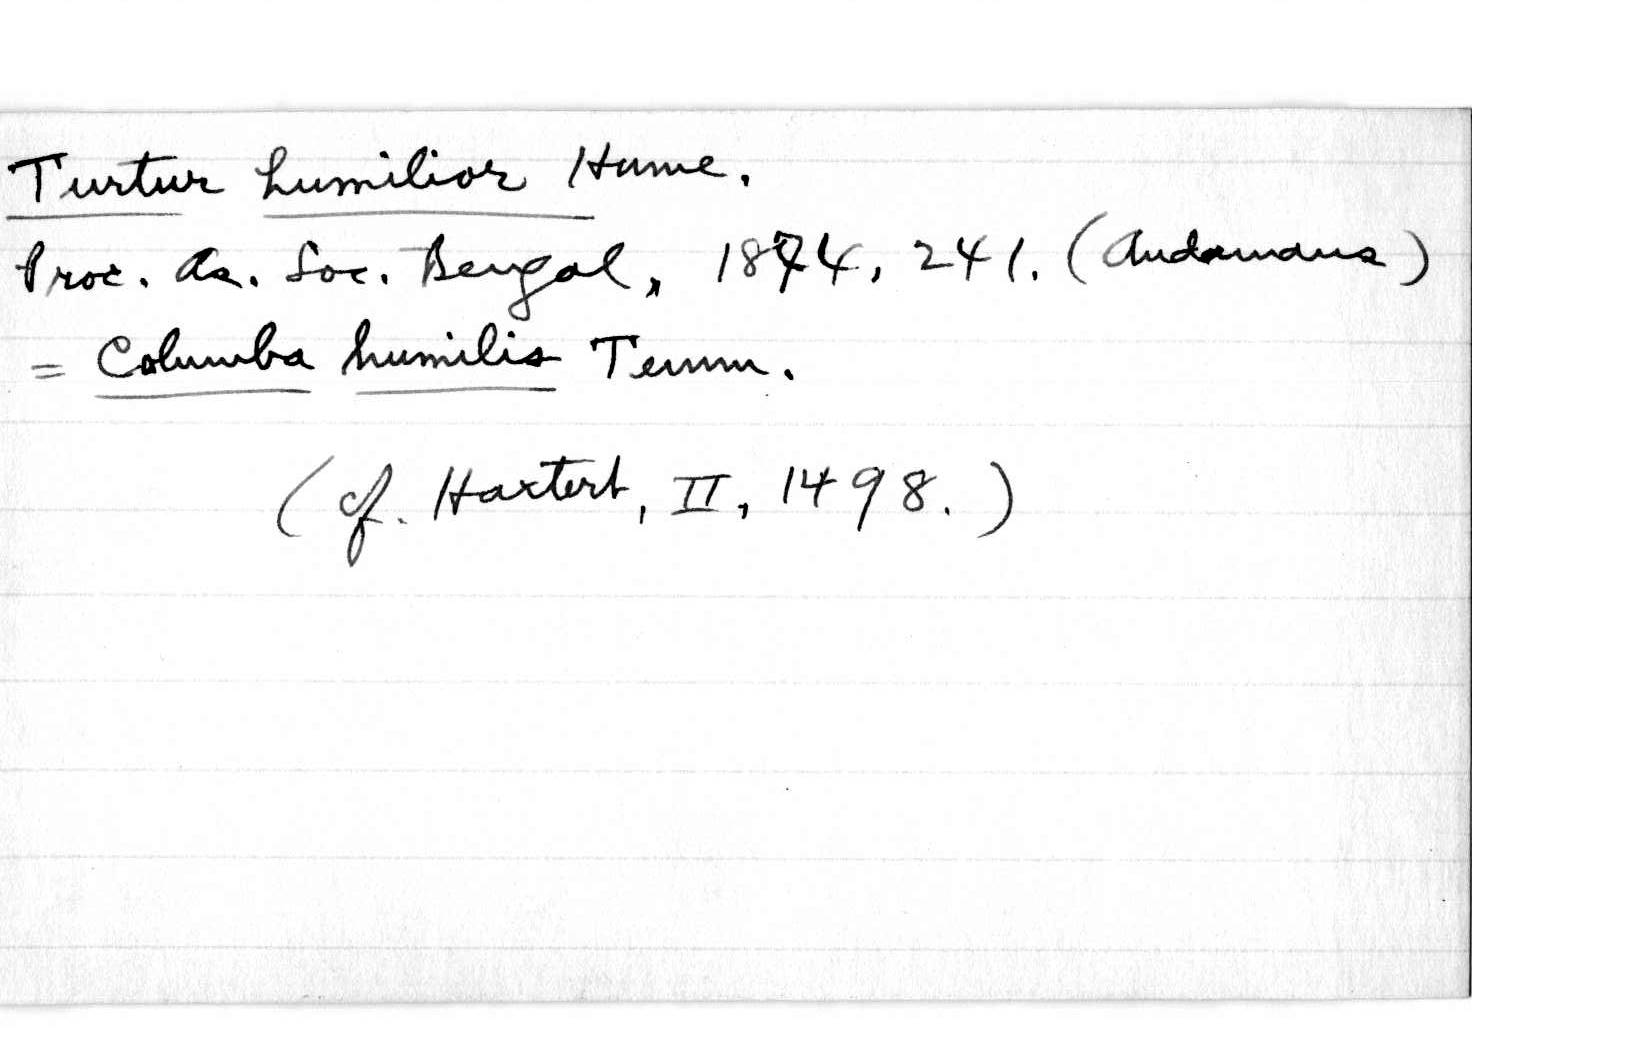 Turtur humilior Hume.
Proc. As. Soc. Bengal, 1874, 241. (Andamans)
= Columba humilis Temm.
(cf. Hartert, II, 1498.)